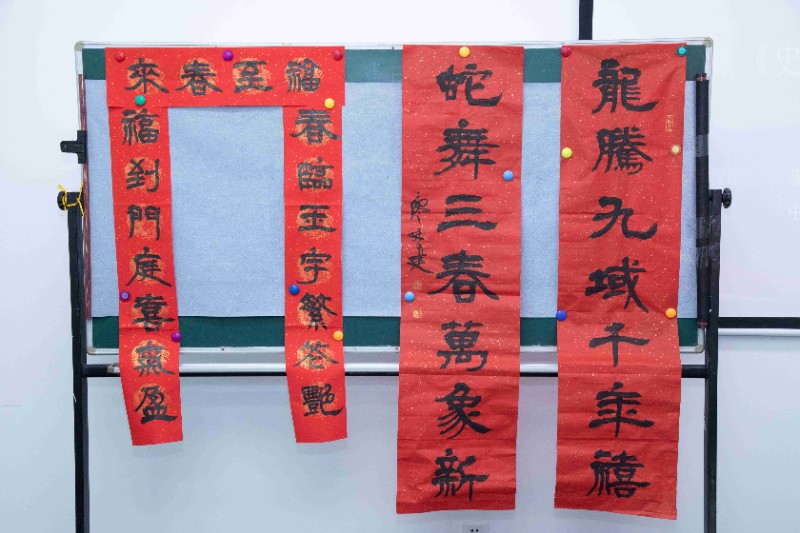 龍騰九域千年禧
蛇舞三春萬象新
福至春來
春臨玉宇繁花艷
福到門庭喜氣盈
《史